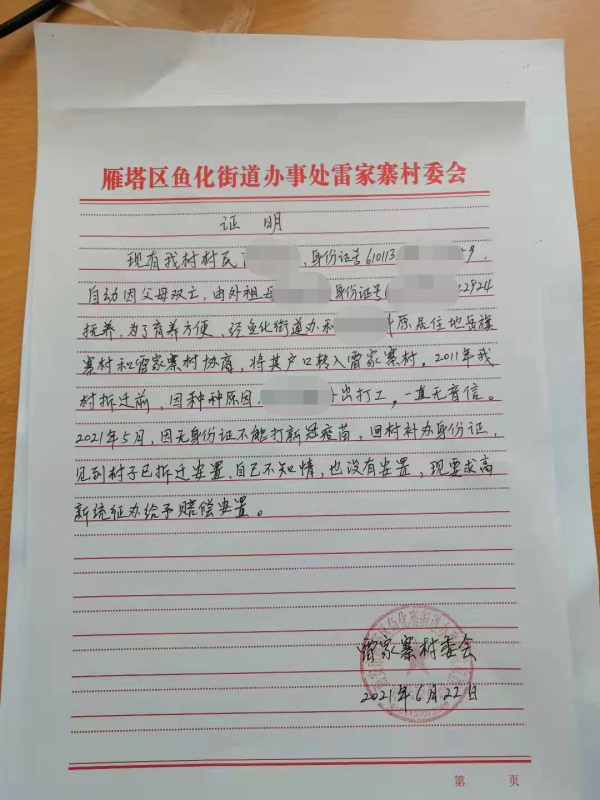 雁塔区鱼化街道办事处雷家寨村委会
证 明
现有我村村民 ,身份证号610113 9,
自幼因父母双亡,由外祖母 身份证号( 2924
抚养,为了育养方便、经鱼化街道办和 原居住地岳旗
寨村和雷家寨村协商,将其户口转入雷家寨村。2011年我
村拆迁前,因种种原因, 外出打工,一直无音信。
2021年5月,因无身份证不能打新冠疫苗,回村补办身份证,
见到村子已拆迁安置,自己不知情,也没有安置,现要求高
新统征办给予赔偿安置。
雷家寨村委会
2021年6月22日
第 页